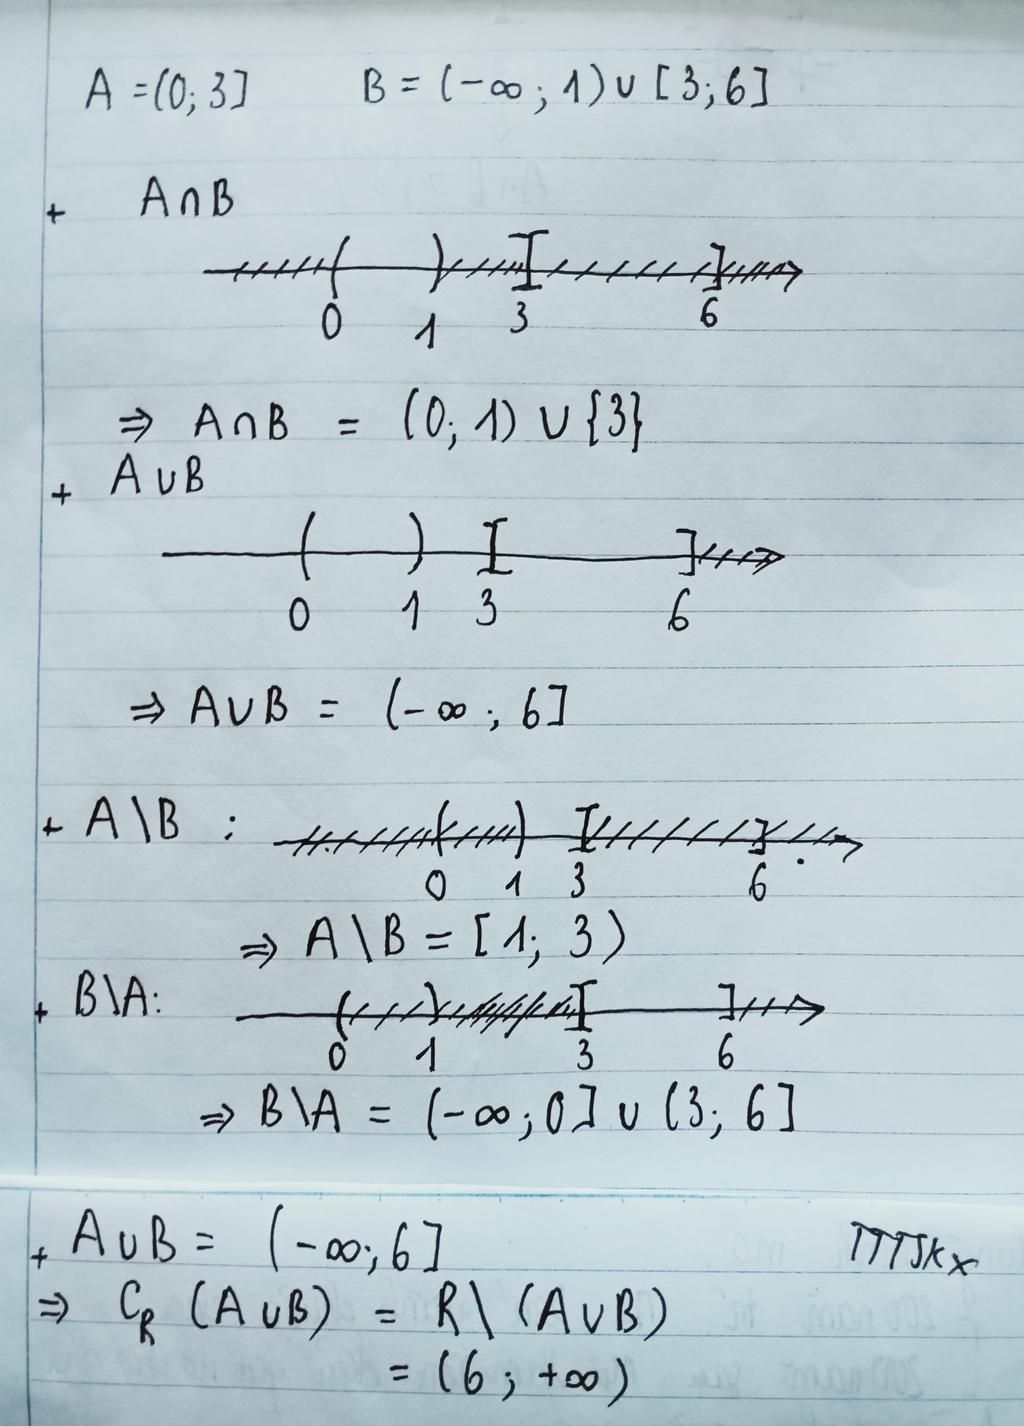 A = (0; 3]    B = (-∞; 1) ∪ [3; 6]
+ A∩B
0 1 3 6
⇒ A∩B = (0; 1) ∪ {3}
+ A∪B
0 1 3 6
⇒ A∪B = (-∞; 6]
+ A\B :
0 1 3 6
⇒ A\B = [1; 3)
+ B\A:
0 1 3 6
⇒ B\A = (-∞; 0] ∪ (3; 6]
+ A∪B = (-∞; 6]
⇒ C_R (A∪B) = R\ (A∪B)
= (6; +∞)